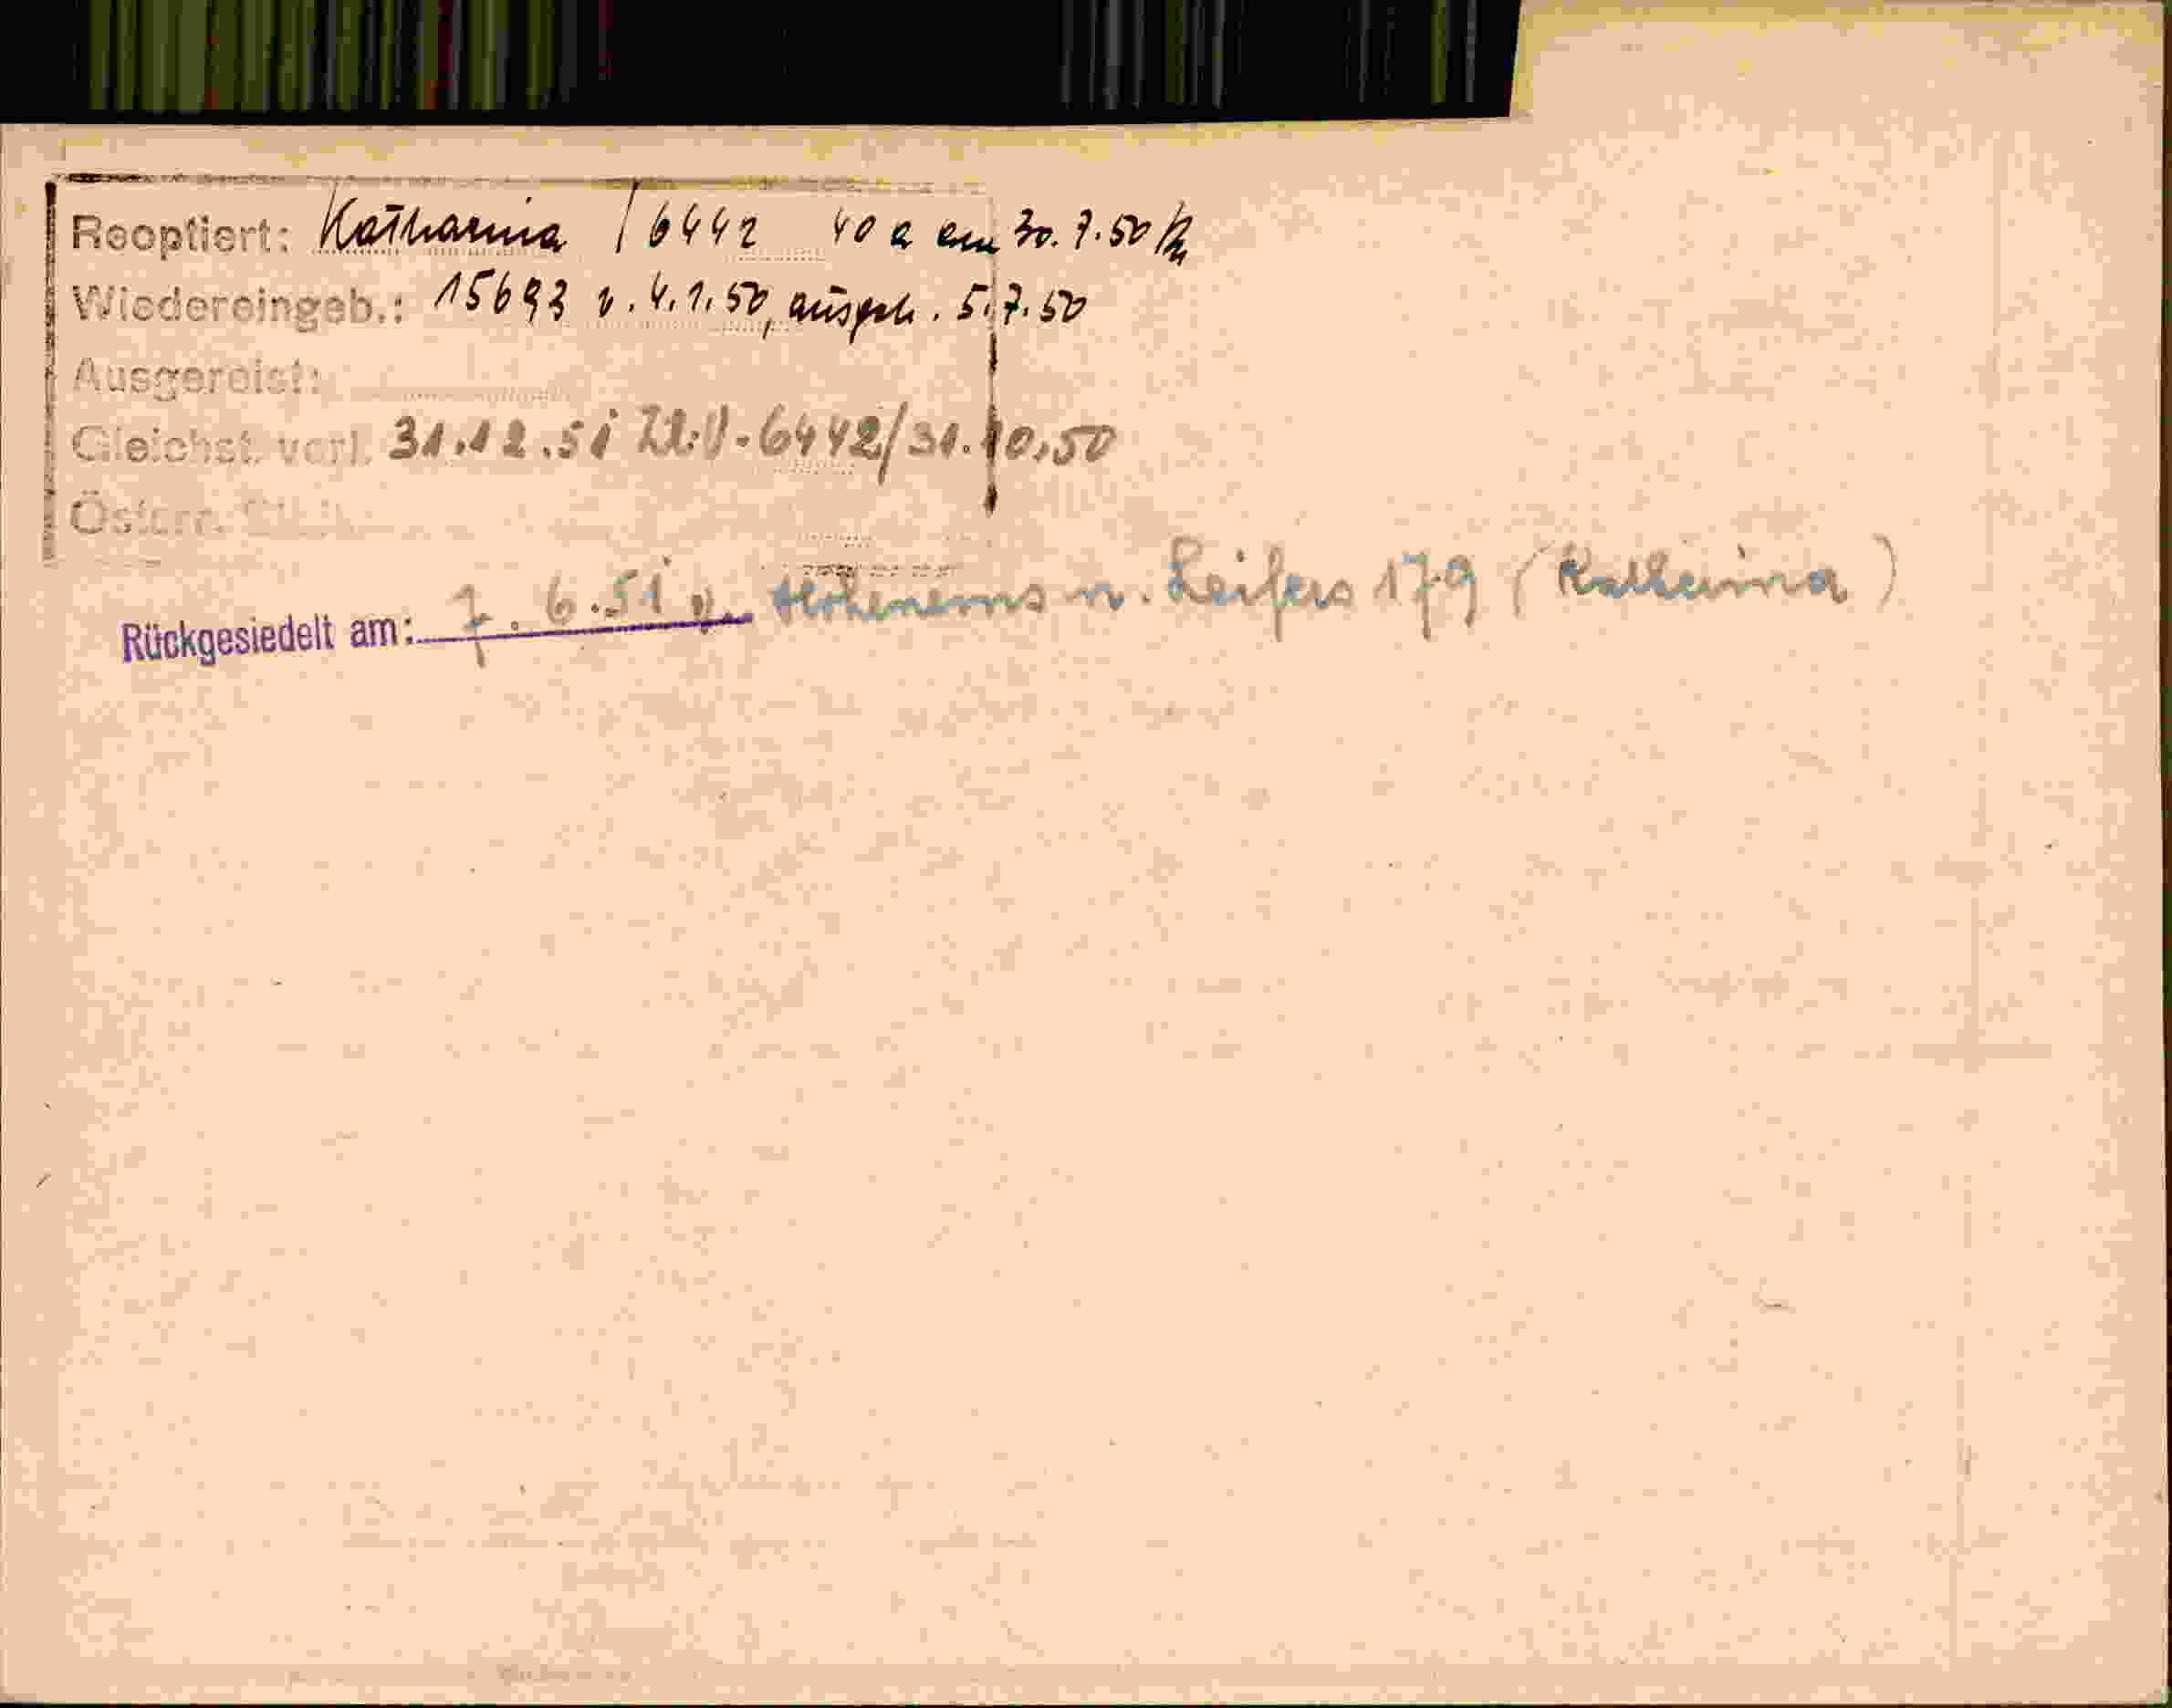 Reoptiert: Katharina / 6442 40 a am 30.7.50
Wiedereingeb.: 15693 v. 4.1.50, ausgeh. 5.7.50
Ausgereist:
Gleichst. verl. 31.12.51 Zl: V-6442/31.10.50
Österr.
Rückgesiedelt am: 7.6.51 v. Hohenems n. Leifers 179 (Katharina)